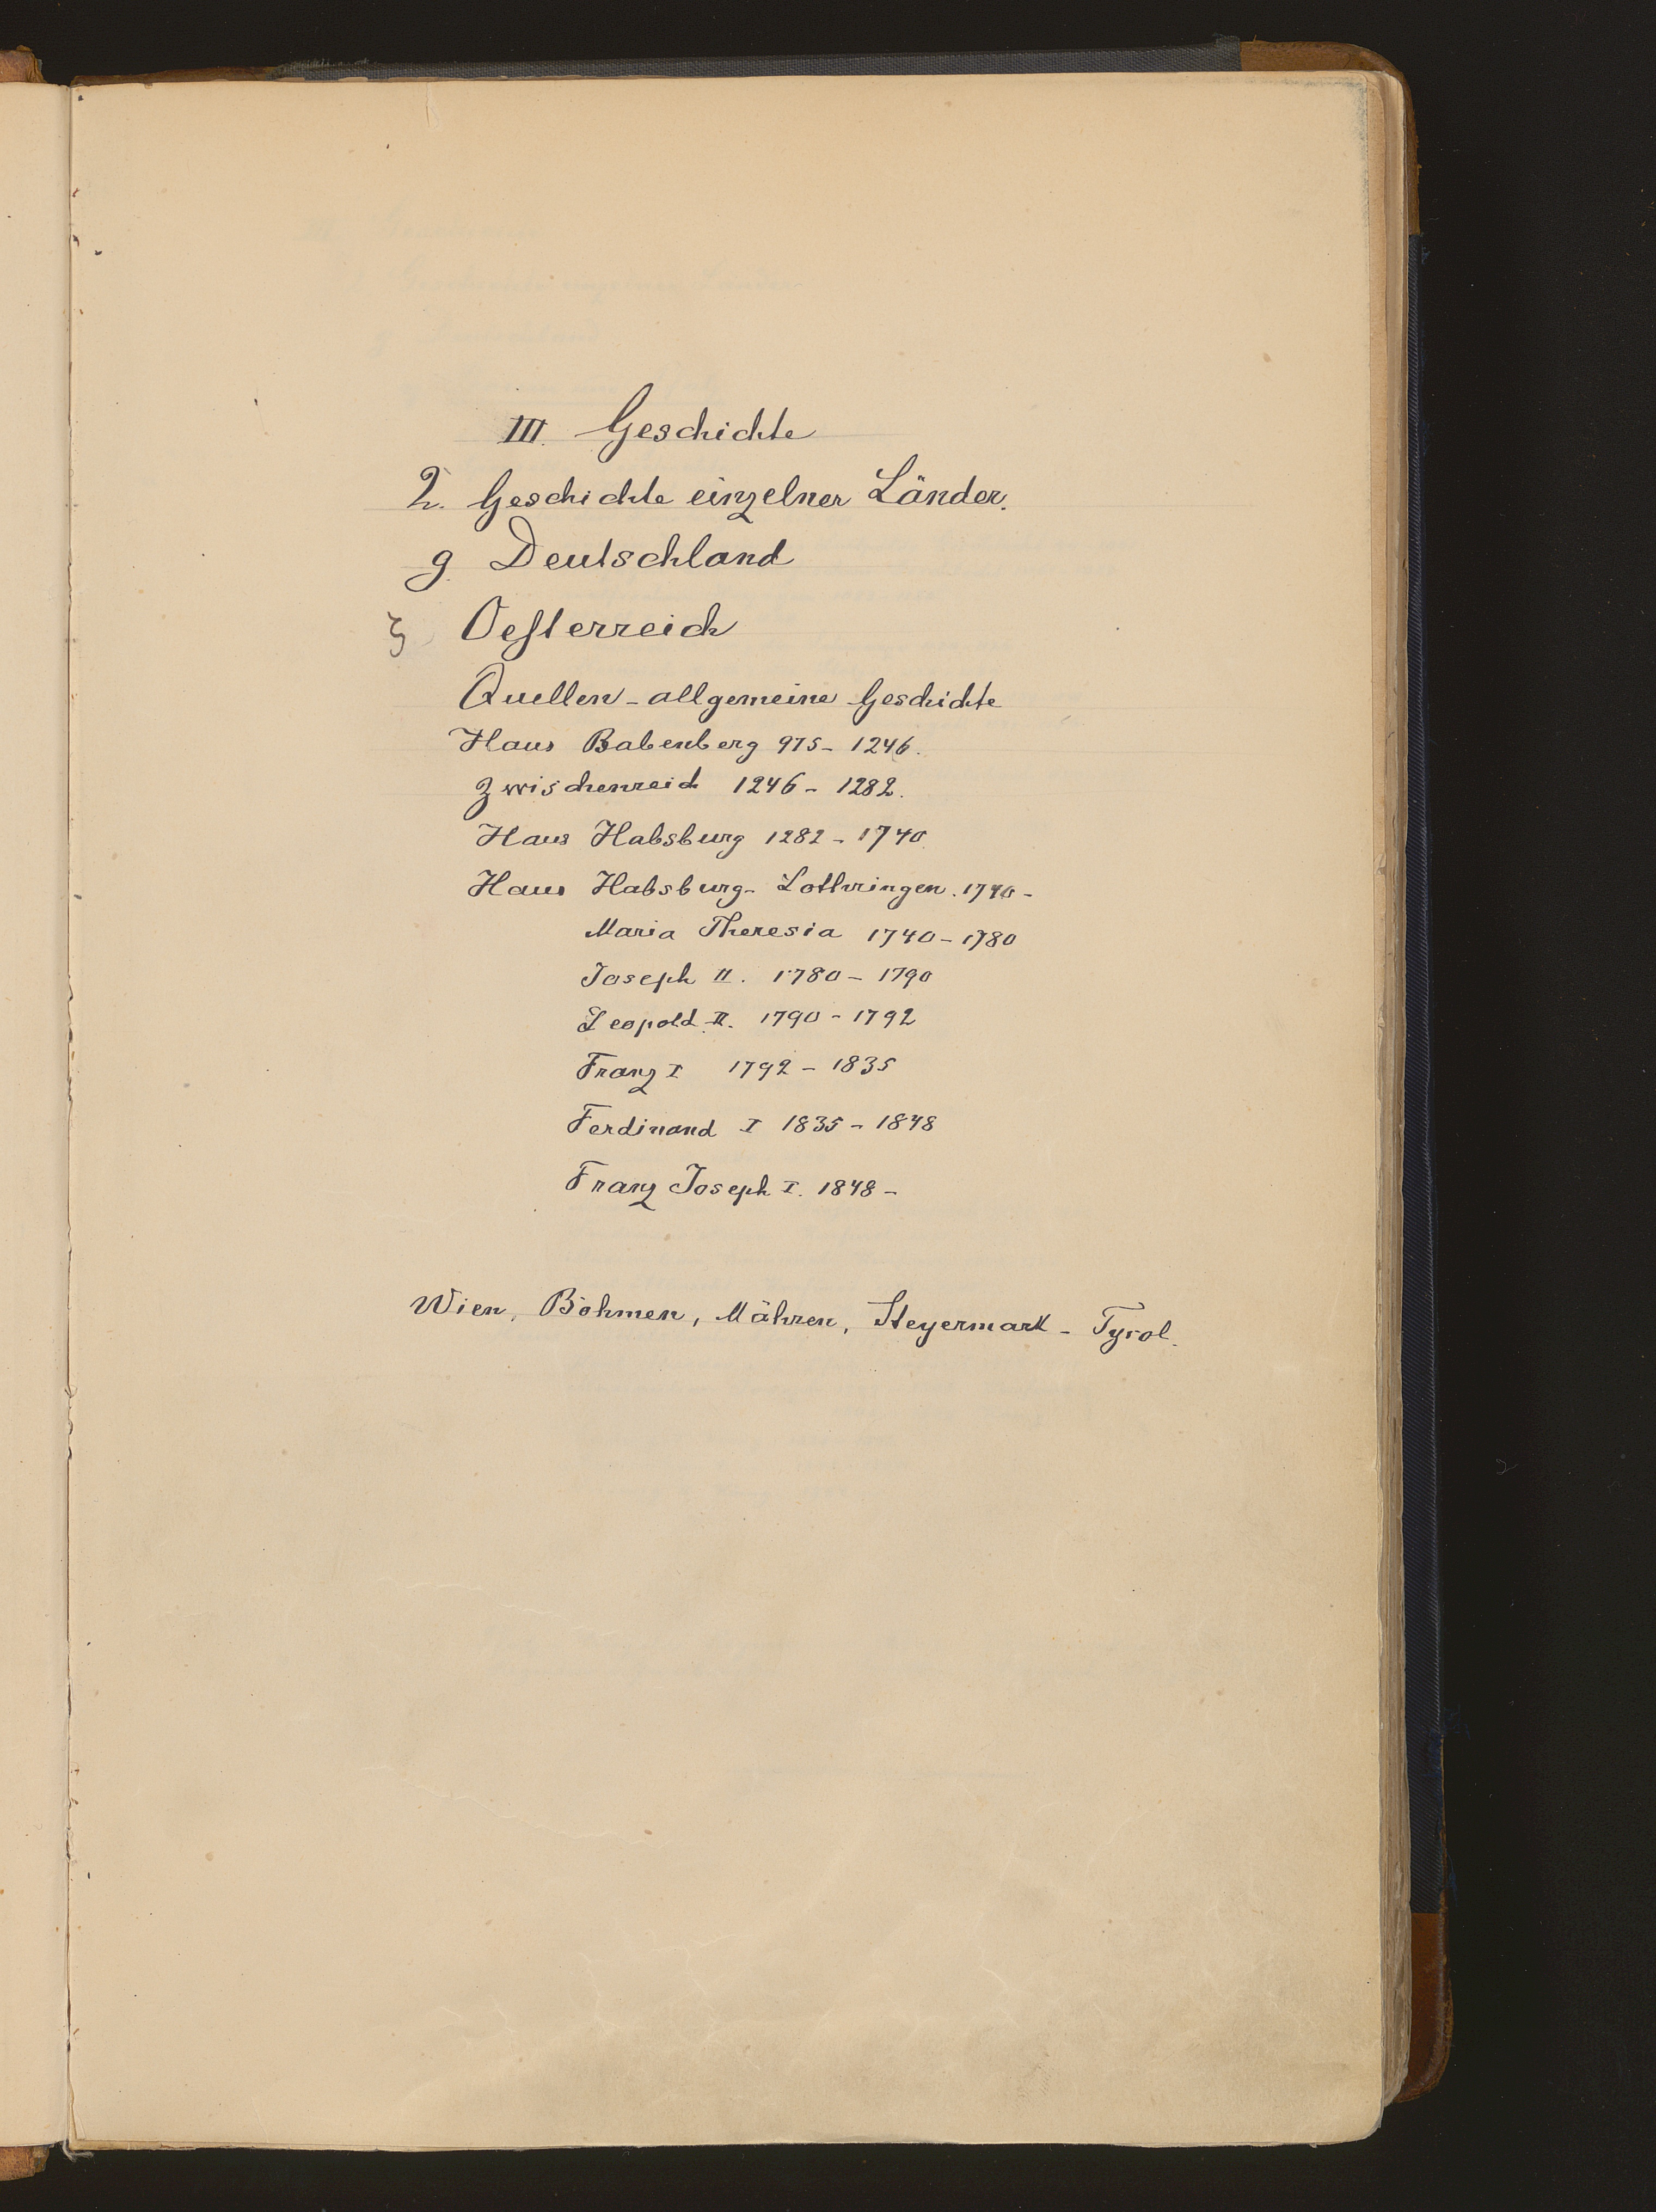 III. Geschichte
2. Geschichte einzelner Länder.
g. Deutschland
ζ Oesterreich
Quellen - allgemeine Geschichte
Haus Babenberg 975 - 1246.
Zwischenreich 1246 - 1282.
Haus Habsburg 1282 - 1740.
Haus Habsburg - Lothringen. 1740 -
Maria Theresia 1740 - 1780
Joseph II. 1780 - 1790
Leopold II. 1790 - 1792
Franz I 1792 - 1835
Ferdinand I 1835 - 1848
Franz Joseph I. 1848 -
Wien, Böhmen, Mähren, Steyermark - Tyrol.